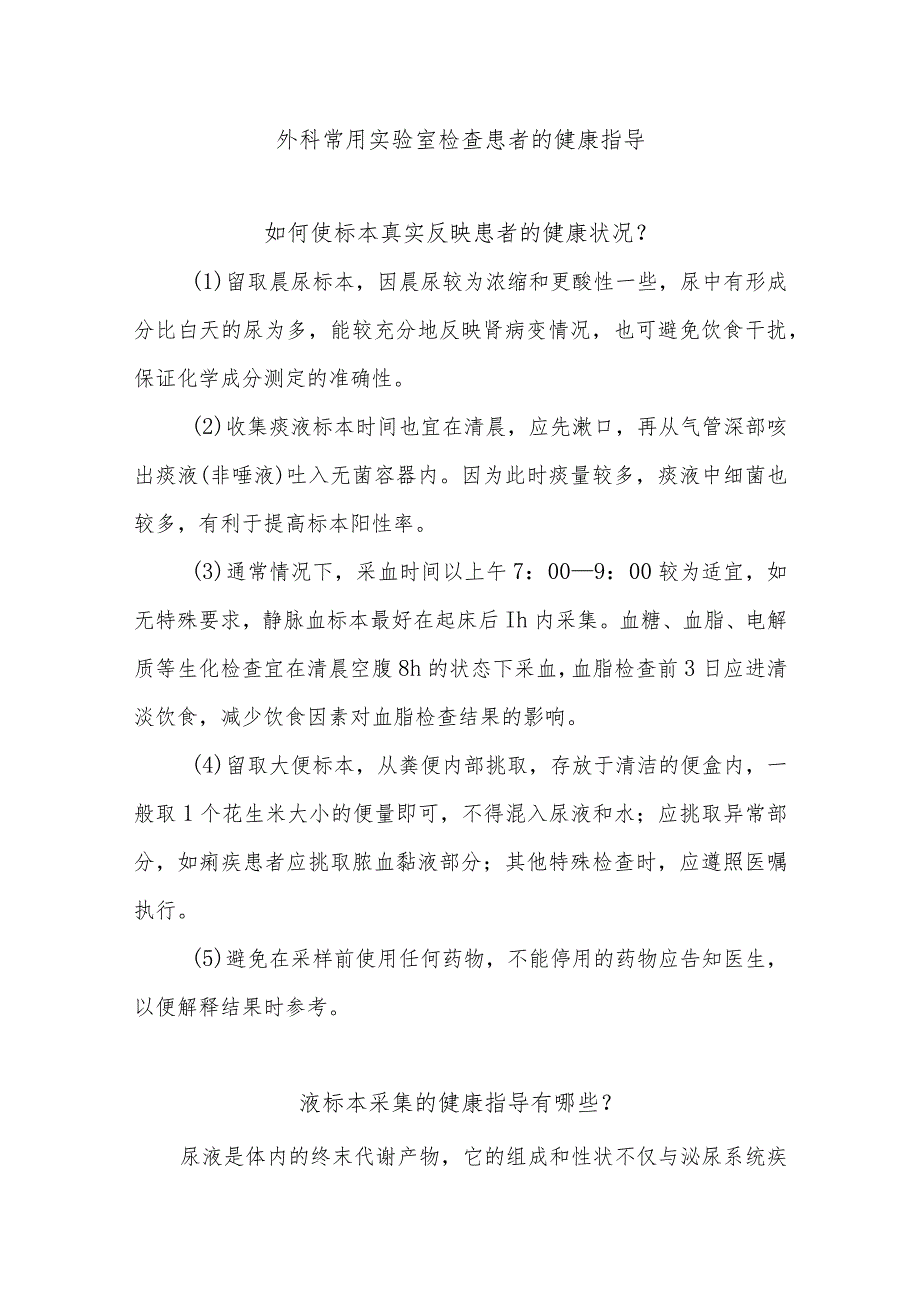 外科常用实验室检查患者的健康指导
如何使标本真实反映患者的健康状况？
(1)留取晨尿标本，因晨尿较为浓缩和更酸性一些，尿中有形成
分比白天的尿为多，能较充分地反映肾病变情况，也可避免饮食干扰，
保证化学成分测定的准确性。
(2)收集痰液标本时间也宜在清晨，应先漱口，再从气管深部咳
出痰液(非唾液)吐入无菌容器内。因为此时痰量较多，痰液中细菌也
较多，有利于提高标本阳性率。
(3)通常情况下，采血时间以上午7：00—9：00较为适宜，如
无特殊要求，静脉血标本最好在起床后Ih内采集。血糖、血脂、电解
质等生化检查宜在清晨空腹8h的状态下采血,血脂检查前3日应进清
淡饮食，减少饮食因素对血脂检查结果的影响。
(4)留取大便标本，从粪便内部挑取，存放于清洁的便盒内，一
般取1个花生米大小的便量即可，不得混入尿液和水；应挑取异常部
分，如痢疾患者应挑取脓血黏液部分；其他特殊检查时，应遵照医嘱
执行。
(5)避免在采样前使用任何药物，不能停用的药物应告知医生，
以便解释结果时参考。
液标本采集的健康指导有哪些？
尿液是体内的终末代谢产物，它的组成和性状不仅与泌尿系统疾